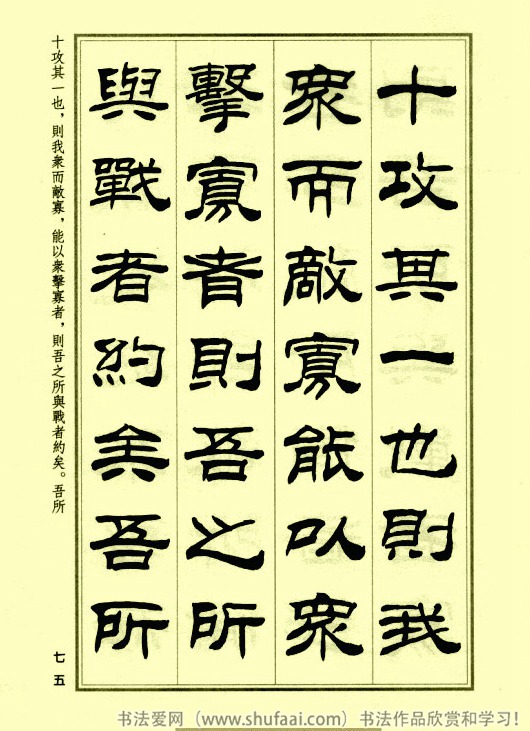 十攻其一也則我
衆而敵寡能以衆
擊寡者則吾之所
與戰者約矣吾所
十攻其一也，則我衆而敵寡，能以衆擊寡者，則吾之所與戰者約矣。吾所
七五
书法爱网（www.shufaai.com）书法作品欣赏和学习！